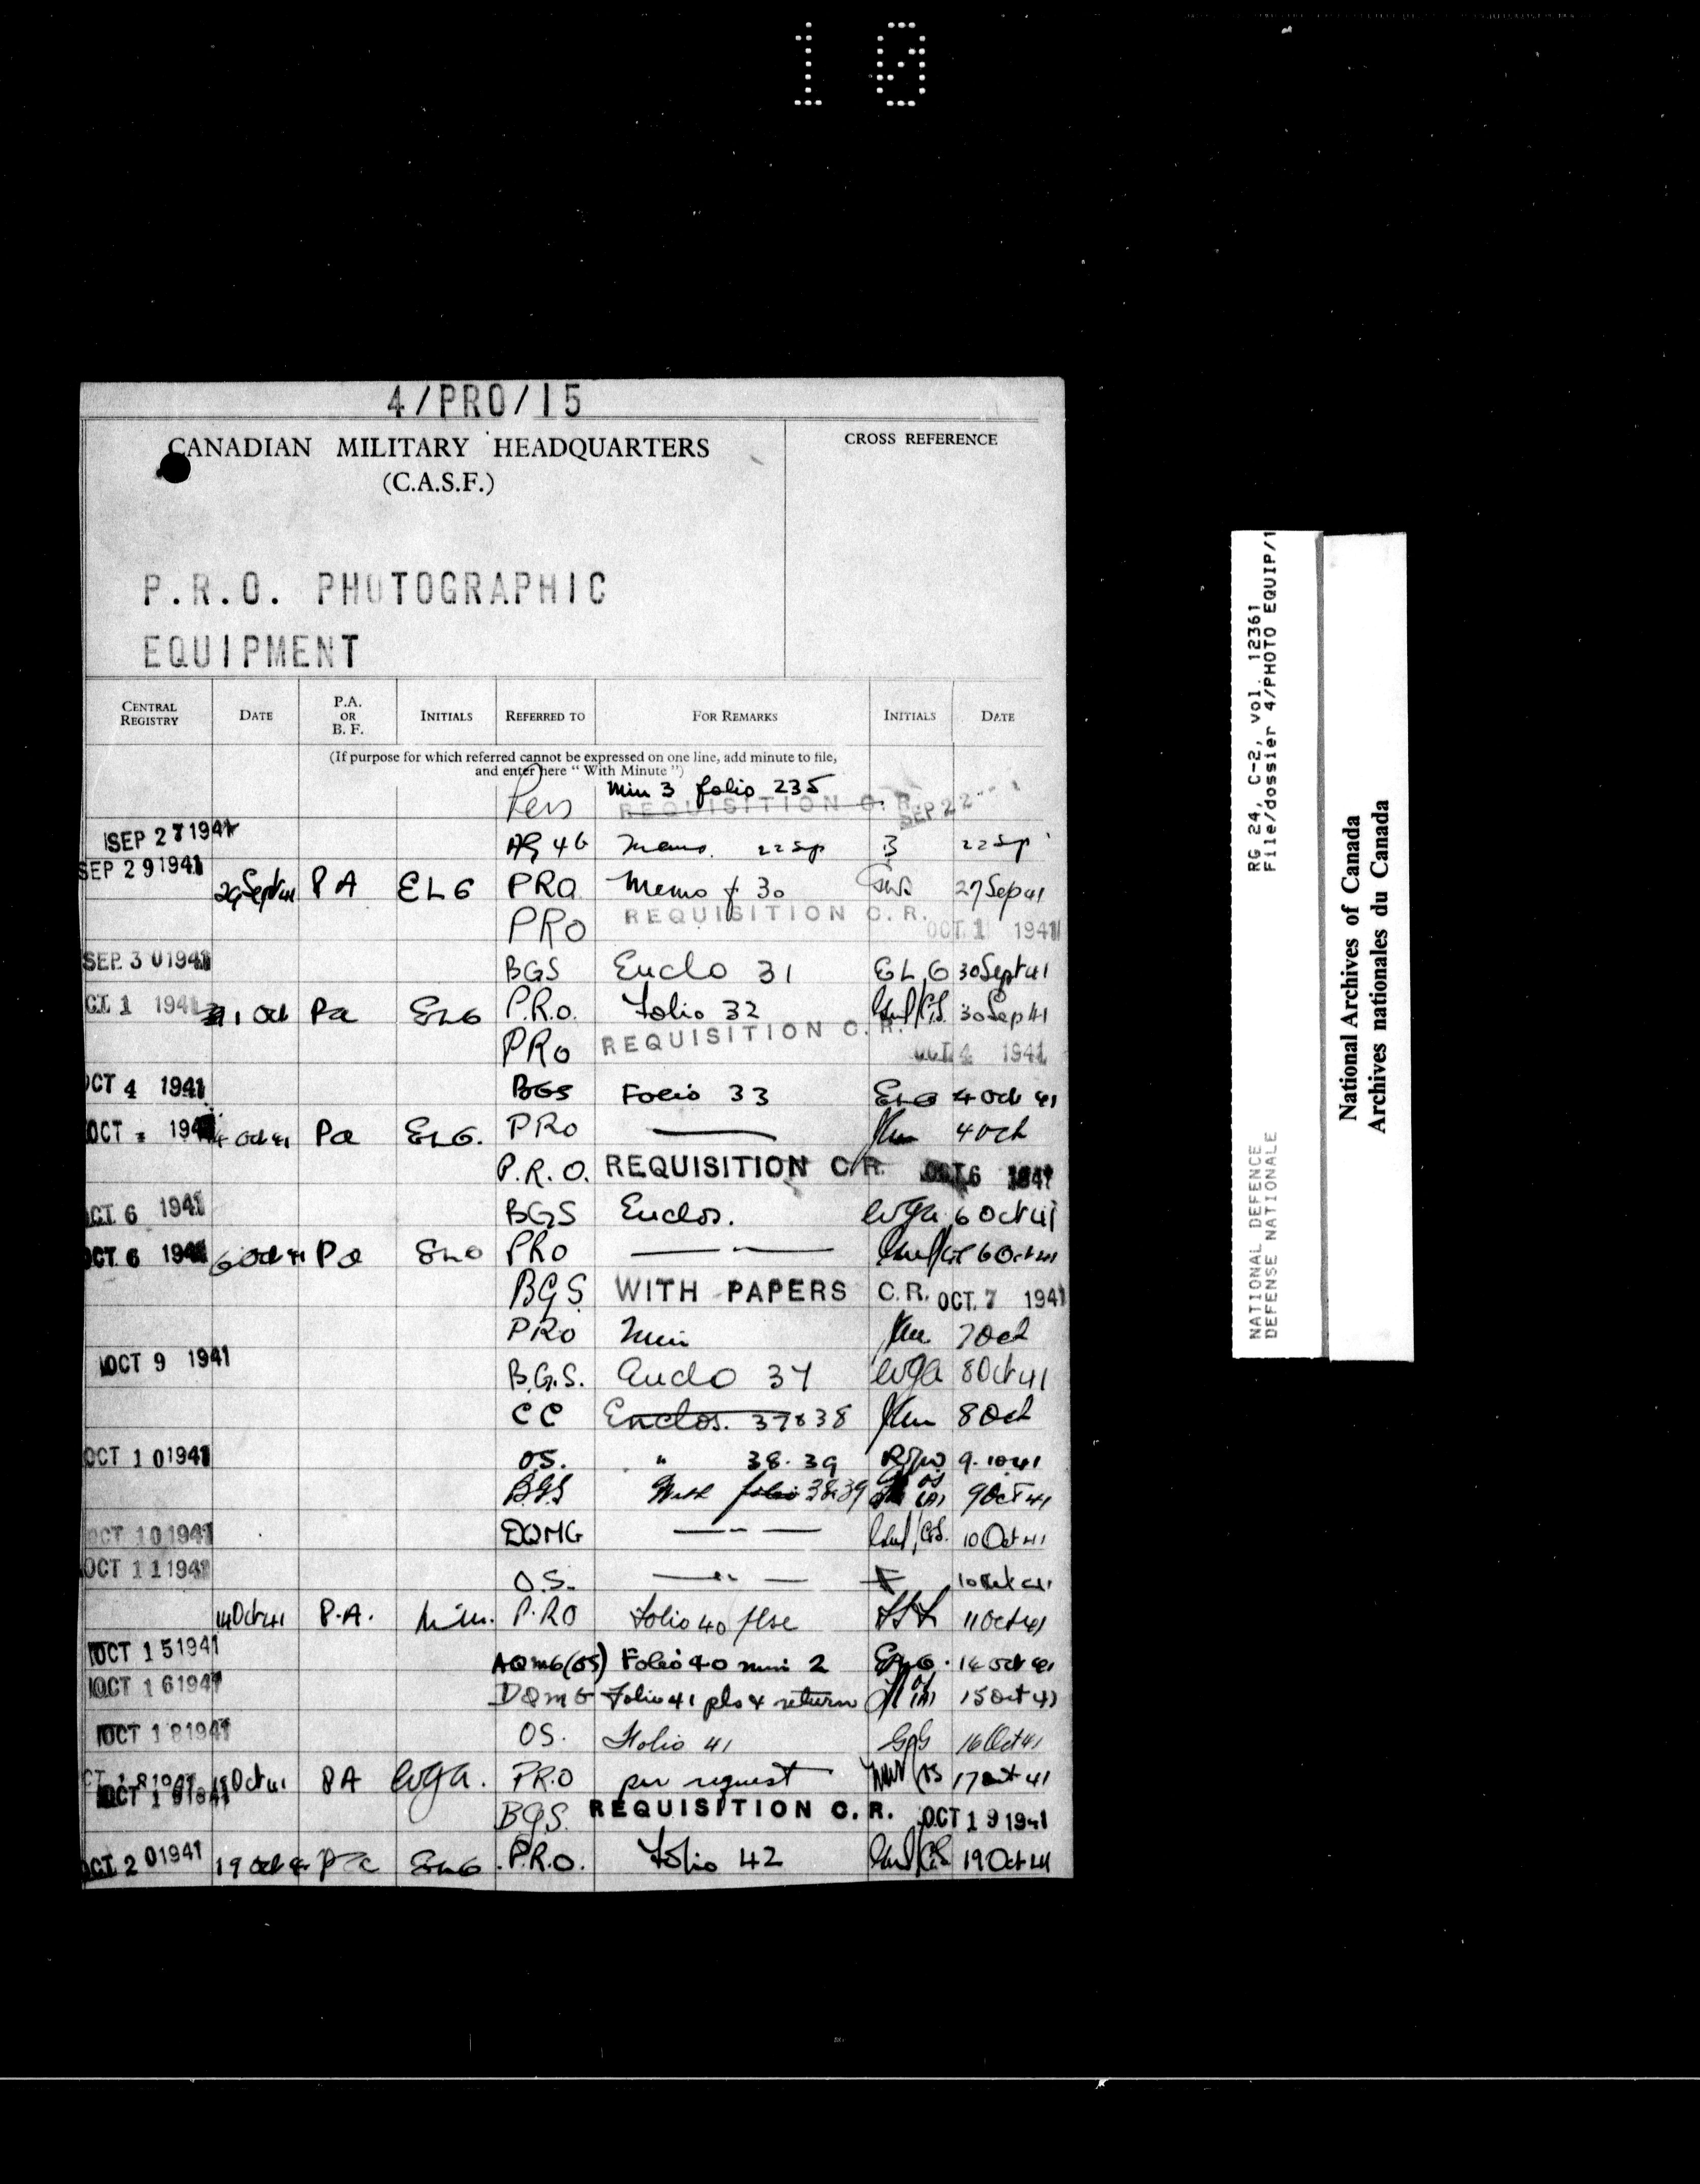 10
4/PRO/15
CANADIAN MILITARY HEADQUARTERS
(C.A.S.F.)
CROSS REFERENCE
P.R.O. PHOTOGRAPHIC
EQUIPMENT
CENTRAL REGISTRY DATE P.A. OR B. F. INITIALS REFERRED TO FOR REMARKS INITIALS DATE
(If purpose for which referred cannot be expressed on one line, add minute to file,
and enter here " With Minute ")
Min 3 folio 235
REQUISITION C. R. SEP 22
SEP 27 1941 AG 4G Memo. 22 Sep 22 Sep
SEP 29 1941 29 Sept 41 PA ELG PRO Memo f 30 27 Sep 41
PRO REQUISITION C. R. OCT 1 1941
SEP 30 1941 BGS Enclo 31 ELG 30 Sept 41
OCT 1 1941 1 Oct Pa ELG P.R.O. Folio 32 30 Sep 41
PRO REQUISITION C. R. OCT 4 1941
OCT 4 1941 BGS Folio 33 ELG 4 Oct 41
OCT 1941 4 Oct 41 Pa ELG. PRO 4 Oct
P.R.O. REQUISITION C.R. OCT 6 1941
OCT 6 1941 BGS Enclos. 6 Oct 41
OCT 6 1941 6 Oct 41 Pa ELG PRO 6 Oct 41
BGS WITH PAPERS C.R. OCT. 7 1941
PRO Min 7 Oct
OCT 9 1941 B.G.S. Enclo 37 8 Oct 41
CC Enclos. 37&38 8 Oct
OCT 10 1941 OS. " 38.39 9.10.41
BGS With folio 38.39 OS (A) 9 Oct 41
OCT 10 1941 DQMG 10 Oct 41
OCT 11 1941 O.S. 10 Oct 41
14 Oct 41 P.A. P.RO Folio 40 plse 11 Oct 41
OCT 15 1941 AQMG(OS) Folio 40 min 2 ELG. 14 Oct 41
OCT 16 1941 DQMG Folio 41 pls & return OS (A) 15 Oct 41
OCT 18 1941 OS. Folio 41 16 Oct 41
18 Oct 41 PA PR.O per request 17 Oct 41
BGS. REQUISITION C. R. OCT 19 1941
OCT 20 1941 19 Oct 41 PA ELG P.R.O. Folio 42 19 Oct 41
RG 24, C-2, vol. 12361
File/dossier 4/PHOTO EQUIP/1
NATIONAL DEFENCE
DEFENSE NATIONALE
National Archives of Canada
Archives nationales du Canada